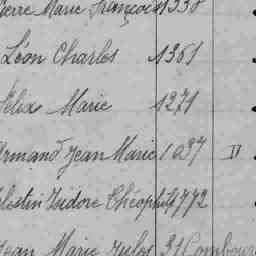 Pierre Marie François 1338
Léon Charles 1361
Félix Marie 1271
Armand Jean Marie 1037 D
Célestin Isidore Théophile 772
Jean Marie Jules 31 Combour